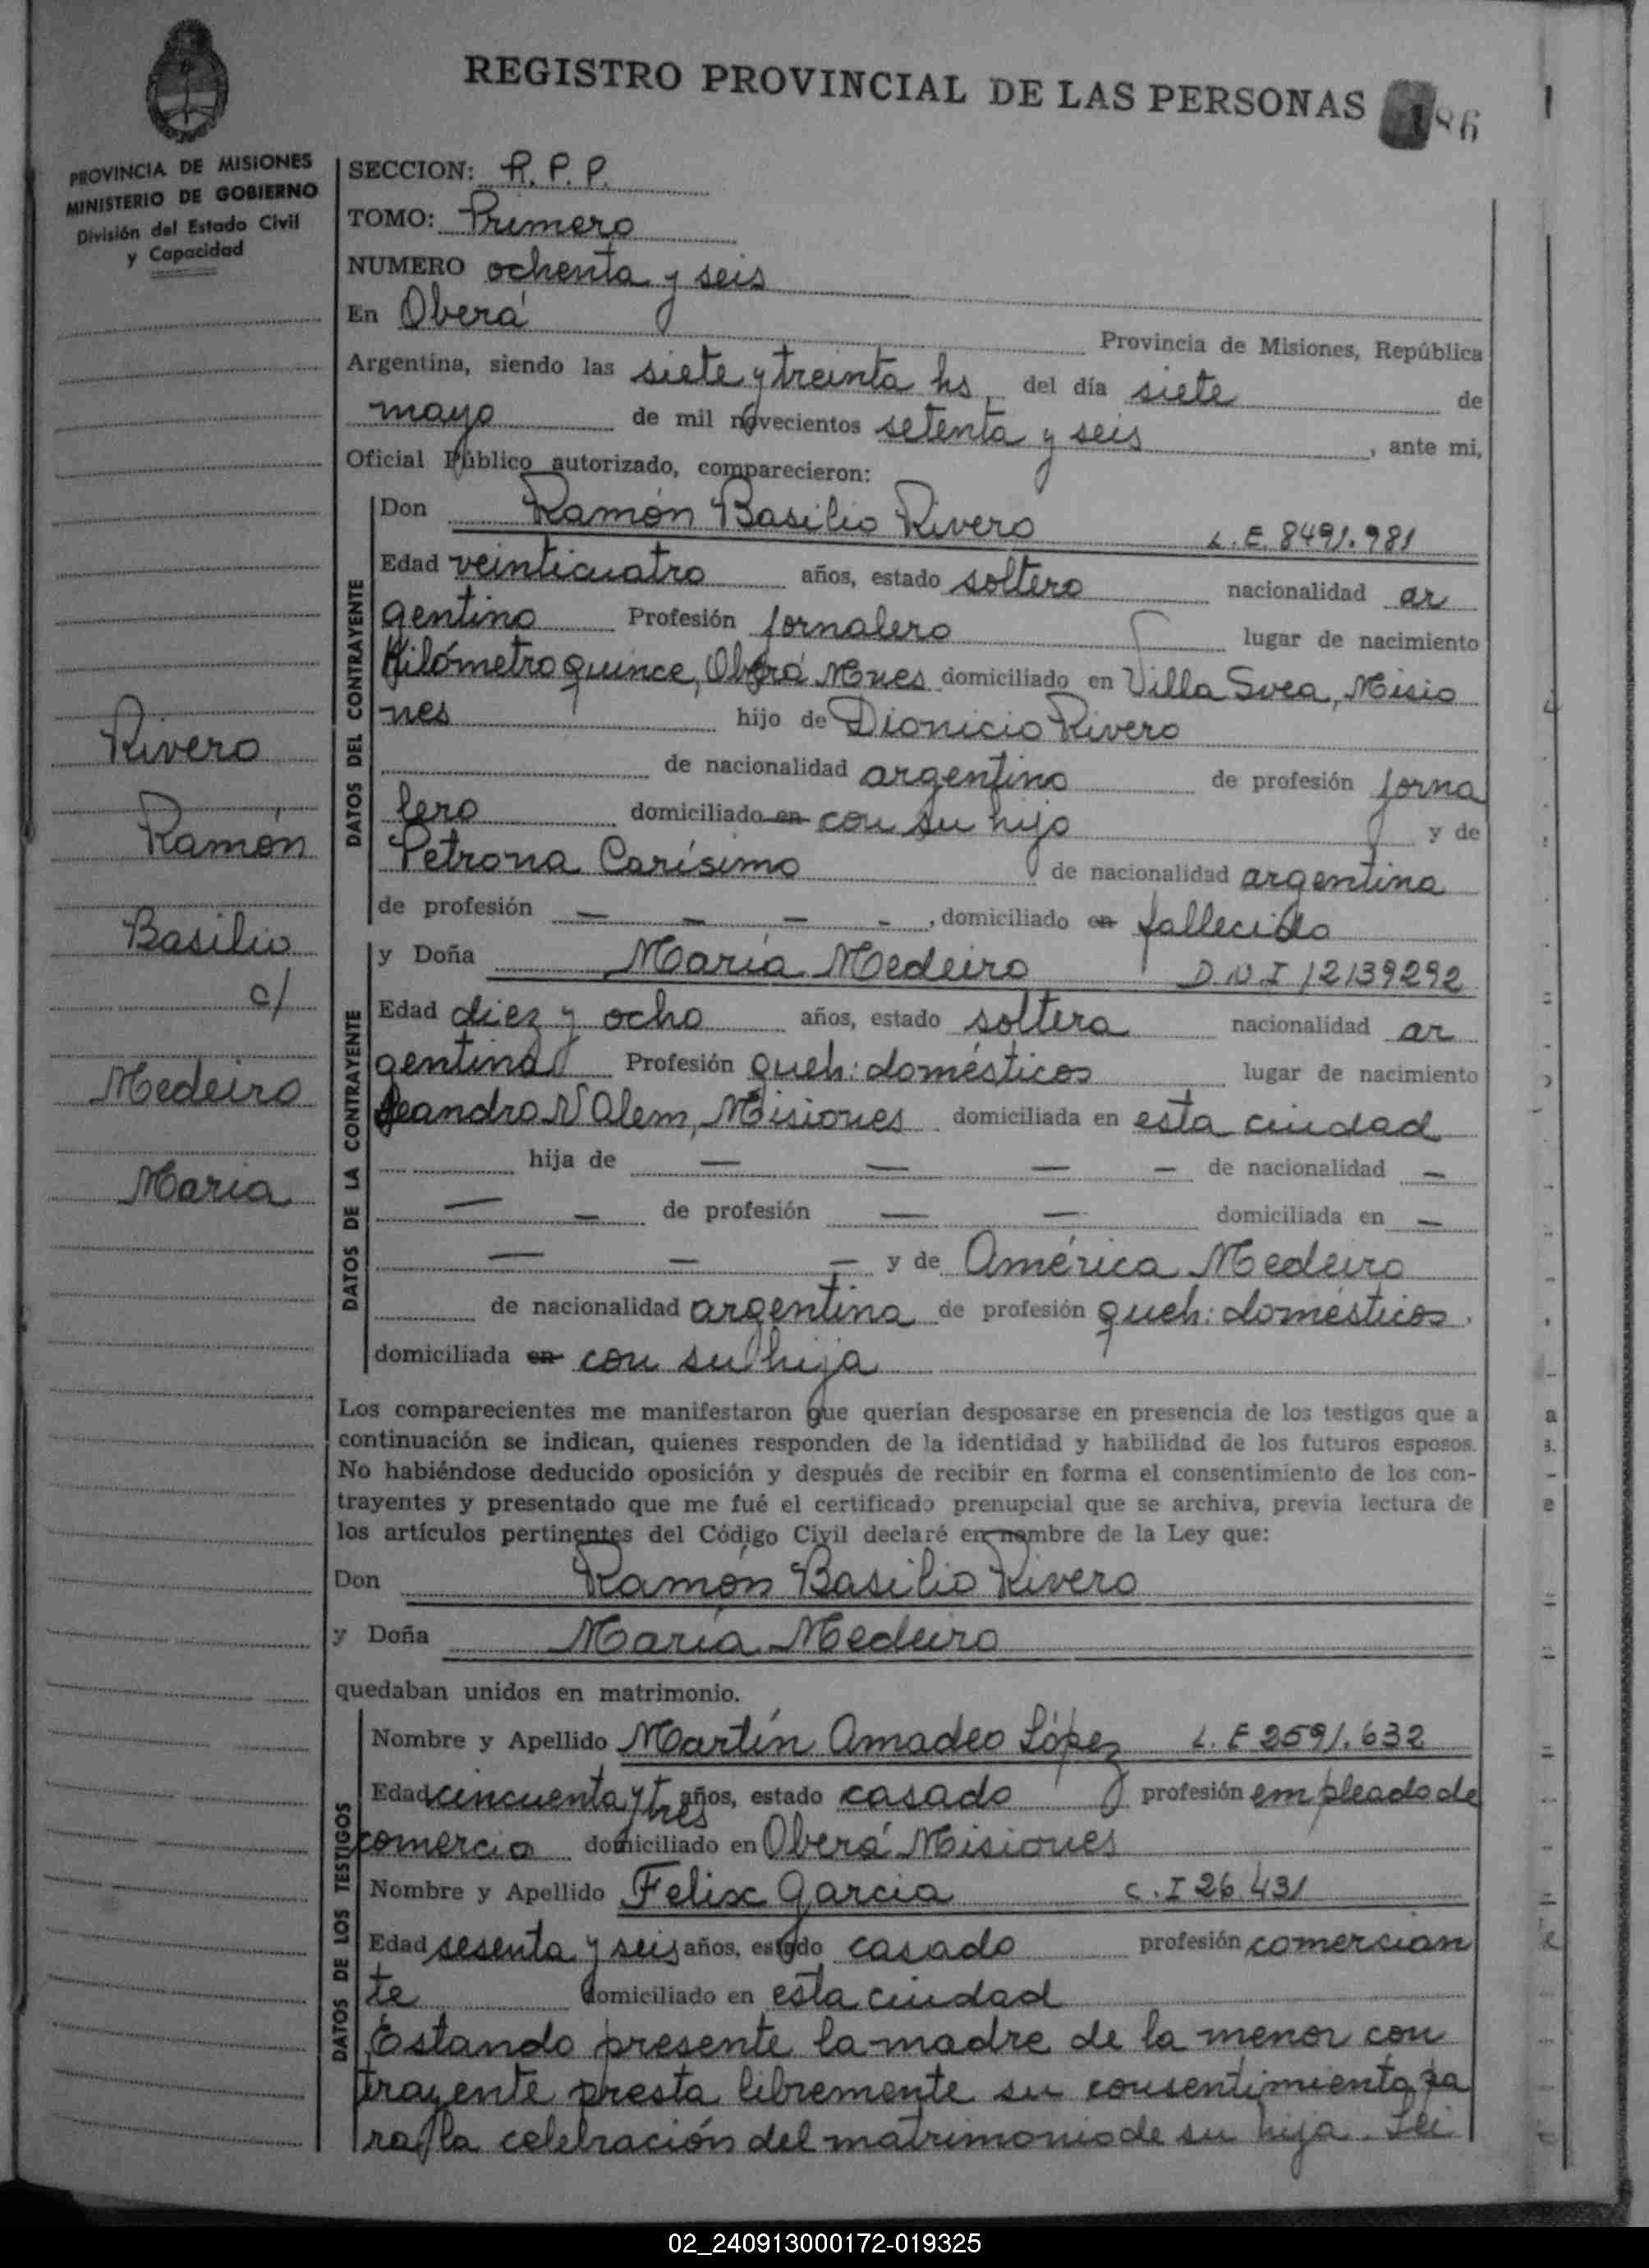 REGISTRO PROVINCIAL DE LAS PERSONAS 86
PROVINCIA DE MISIONES
MINISTERIO DE GOBIERNO
División del Estado Civil
y Capacidad
SECCION: R. P. P.
TOMO: Primero
NUMERO ochenta y seis
En Oberá
Provincia de Misiones, República
Argentina, siendo las siete y treinta hs, del día siete de
mayo de mil novecientos setenta y seis, ante mi,
Oficial Público autorizado, comparecieron:
DATOS DEL CONTRAYENTE
Don Ramón Basilio Rivero L.E. 8491.981
Edad veinticuatro años, estado soltero nacionalidad ar
gentino Profesión jornalero lugar de nacimiento
Kilómetro quince, Oberá Mnes domiciliado en Villa Svea, Misio
nes hijo de Dionicio Rivero
de nacionalidad argentino de profesión jorna
lero domiciliado en con su hijo y de
Petrona Carísimo de nacionalidad argentina
de profesión — — — -, domiciliado en fallecida
DATOS DE LA CONTRAYENTE
y Doña María Medeiro D.N.I 12139292
Edad diez y ocho años, estado soltera nacionalidad ar
gentina Profesión queh: domésticos lugar de nacimiento
Leandro N Alem, Misiones domiciliada en esta ciudad
hija de — — — — de nacionalidad —
— — de profesión — — domiciliada en —
— — — y de América Medeiro
de nacionalidad argentina de profesión queh: domésticos.
domiciliada en con su hija
Rivero
Ramón
Basilio
c/
Medeiro
María
Los comparecientes me manifestaron que querían desposarse en presencia de los testigos que a
continuación se indican, quienes responden de la identidad y habilidad de los futuros esposos.
No habiéndose deducido oposición y después de recibir en forma el consentimiento de los con-
trayentes y presentado que me fué el certificado prenupcial que se archiva, previa lectura de
los artículos pertinentes del Código Civil declaré en nombre de la Ley que:
Don Ramón Basilio Rivero
y Doña María Medeiro
quedaban unidos en matrimonio.
DATOS DE LOS TESTIGOS
Nombre y Apellido Martín Amadeo López L.E 2591.632
Edad cincuenta y tres años, estado casado profesión empleado de
comercio domiciliado en Oberá Misiones
Nombre y Apellido Felix Garcia C.I 26.431
Edad sesenta y seis años, estado casado profesión comercian
te domiciliado en esta ciudad
Estando presente la madre de la menor con
trayente presta libremente su consentimiento pa
ra la celebración del matrimonio de su hija. Lei
02_240913000172-019325